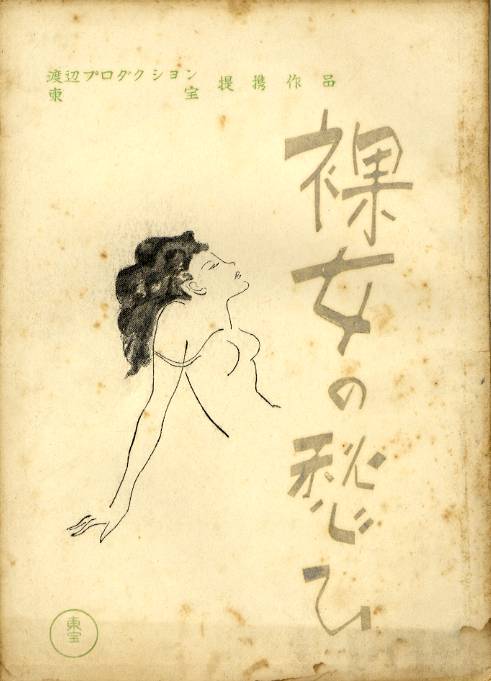 渡辺プロダクション
東宝 提携作品
裸女の愁ひ
東宝